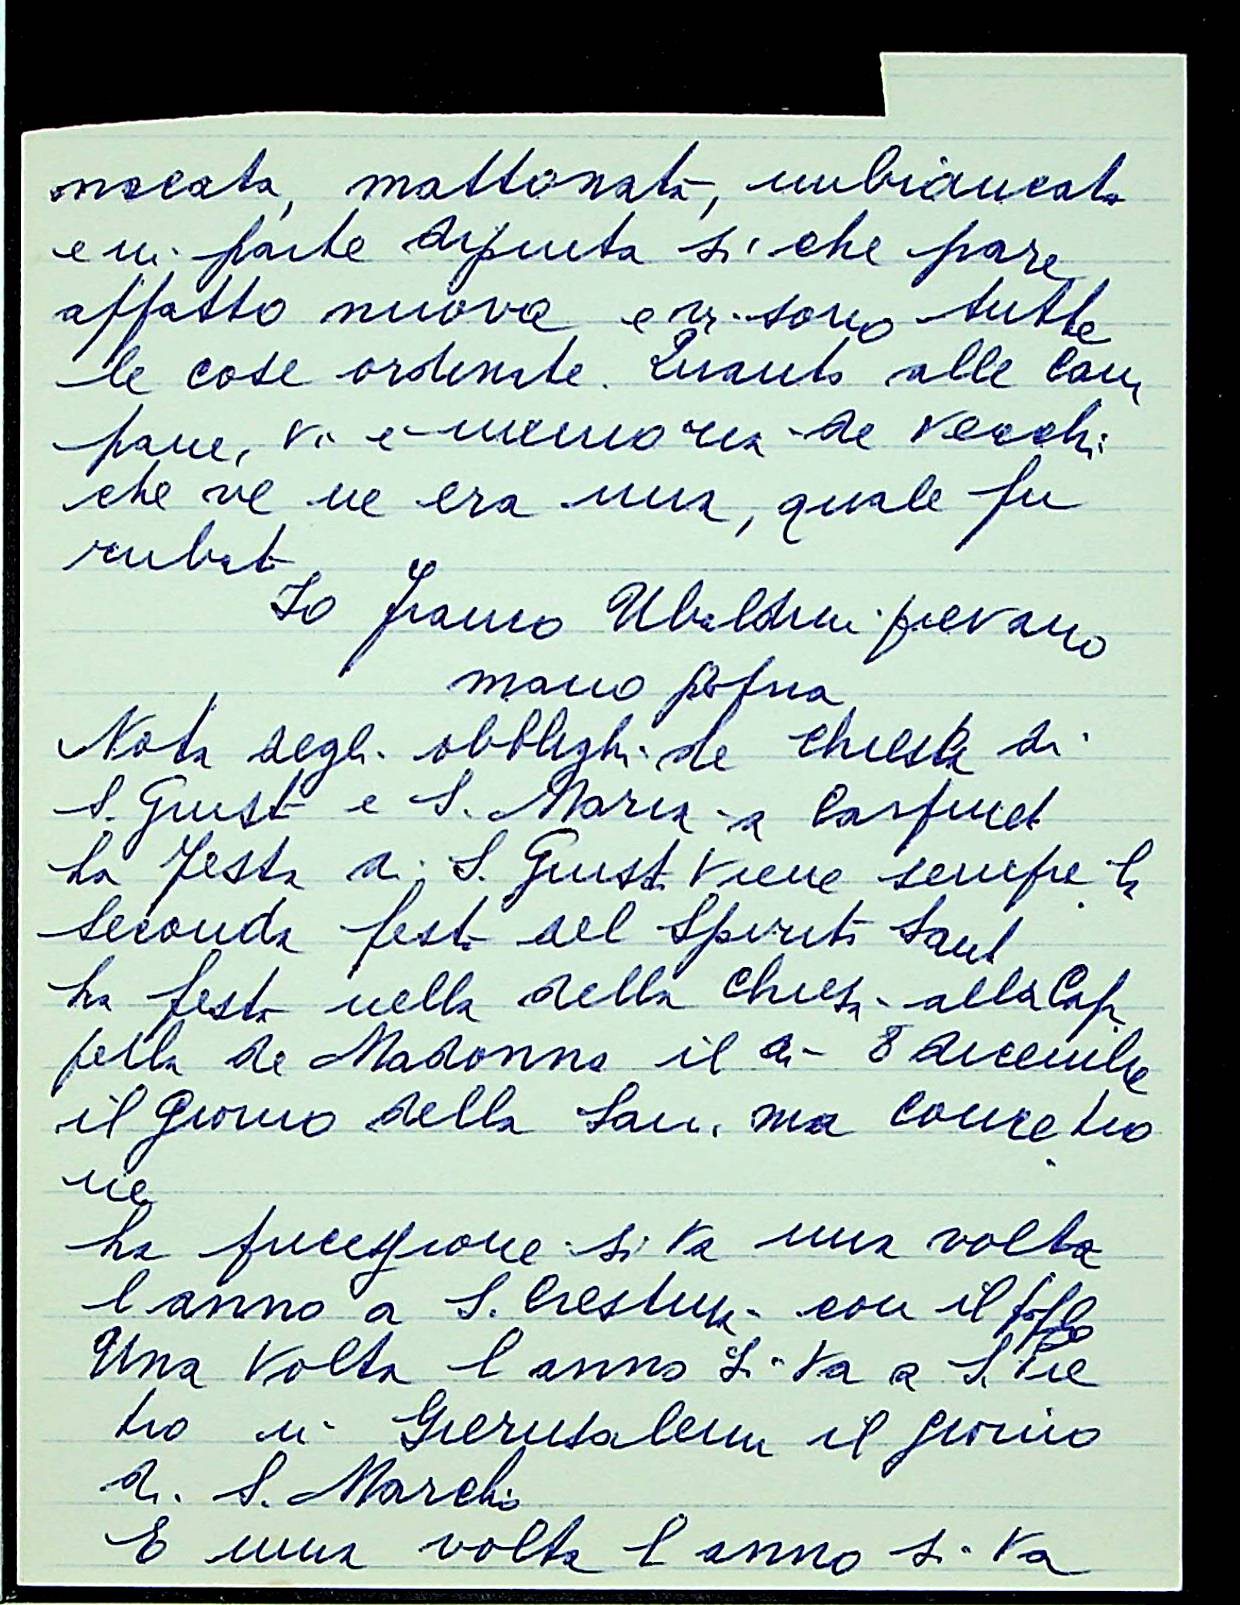 mattonata, imbiancata
e in parte dipinta si che pare
affatto nuova e vi sono tutte
le cose ordinate. Quanto alle cam
pane, vi e memoria de vecchi
che ve ne era una, quale fu
rubata
Io Franco Ubaldini pievano
mano propria
Nota degli obblighi de chiesa di
S. Giusto e S. Maria a
La festa di S. Giusto viene sempre la
seconda festa del Spirito Santo
La festa nella della chiesa alla Cap
pella de Madonna il di 8 dicembre
il giorno della San. ma concetio
ne
La processione si va una volta
l anno a S. Crestina con il popolo
Una volta l anno si va a S. Pie
tro in Gierusalemm il giorno
di S. Marcho
E una volta l anno si va